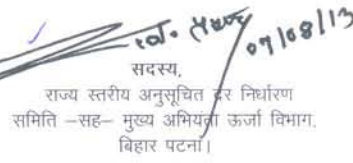 07/08/13
सदस्य,
राज्य स्तरीय अनुसूचित दर निर्धारण
समिति –सह– मुख्य अभियंता ऊर्जा विभाग,
बिहार पटना।